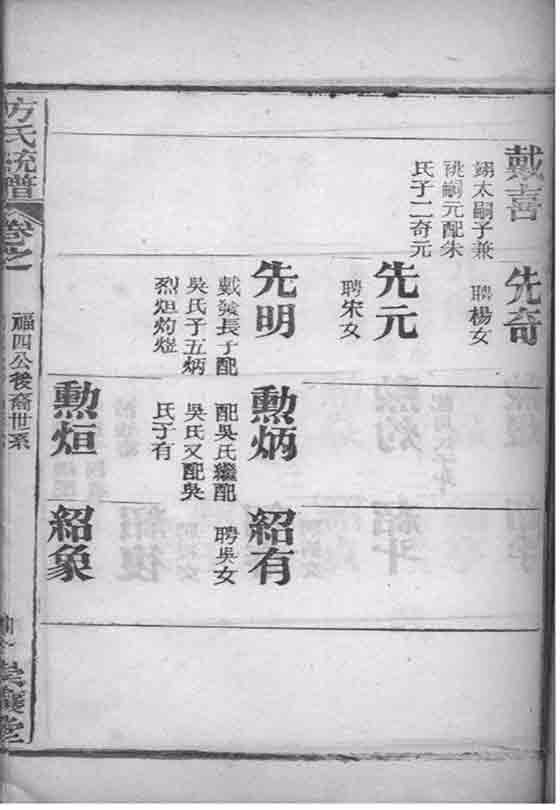 戴喜
翊太嗣子兼
祧嗣元配朱
氏子二奇元
先奇
聘楊女
先元
聘宋女
先明
戴發長子配
吳氏子五炳
烈烜灼煜
勲炳
配吳氏繼配
吳氏又配吳
氏子有
勲烜
紹有
聘吳女
紹象
方氏統譜
卷之一
福四公後裔世系